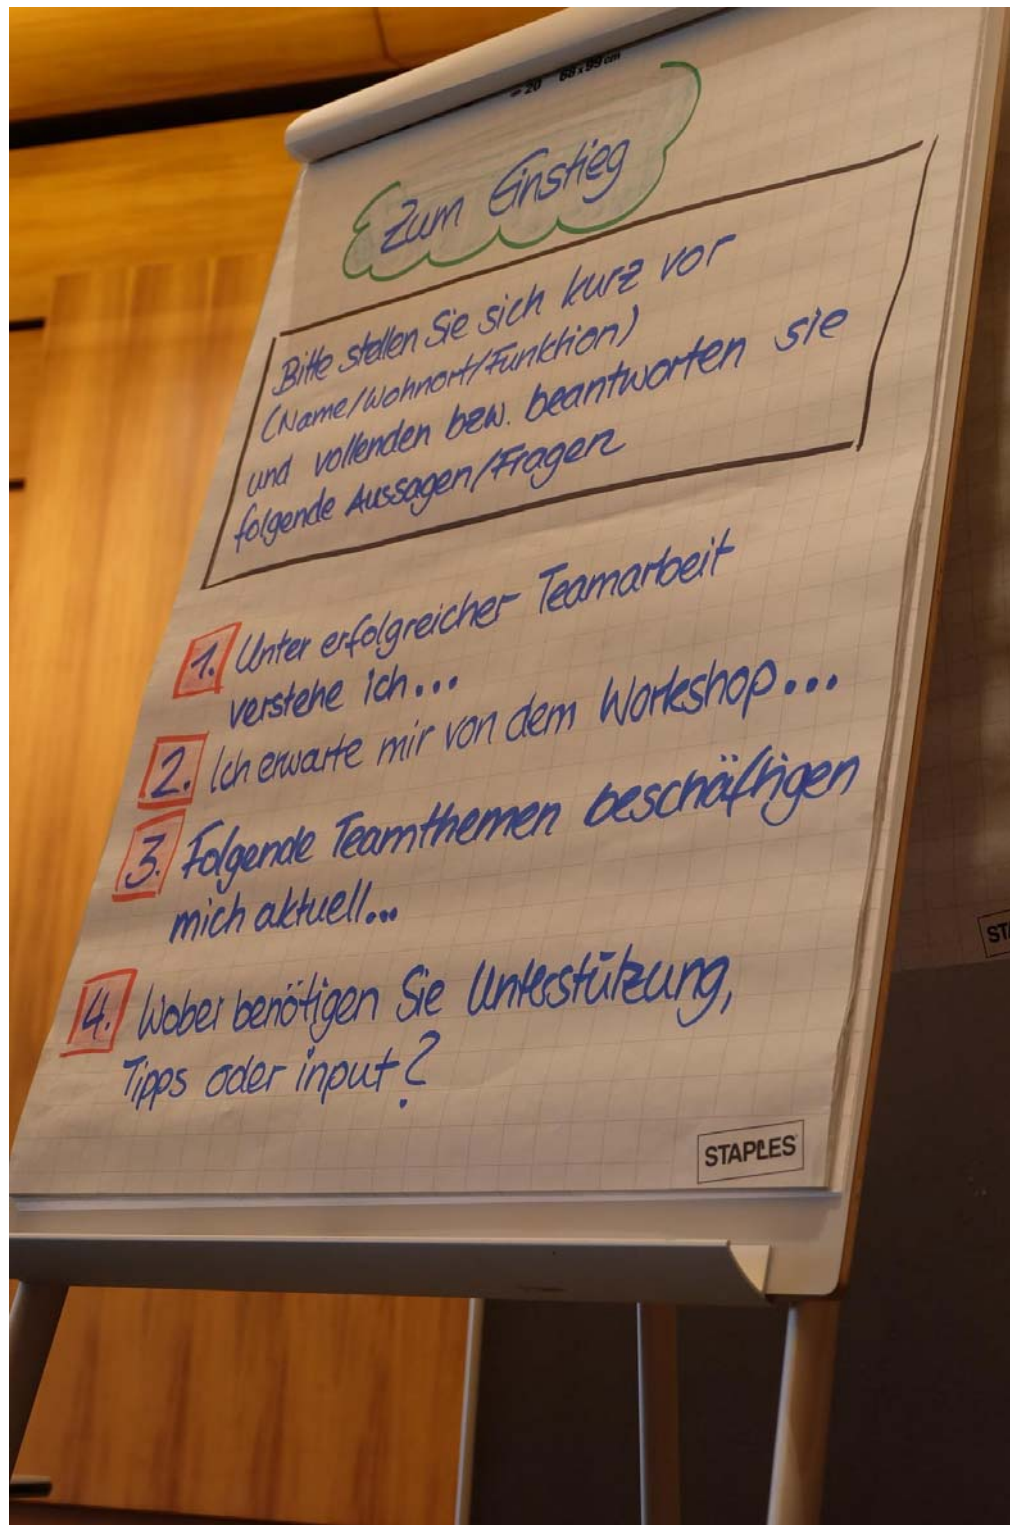 20 68 x 99 cm
Zum Einstieg
Bitte stellen Sie sich kurz vor
(Name/Wohnort/Funktion)
und vollenden bzw. beantworten sie
folgende Aussagen/Fragen
1. Unter erfolgreicher Teamarbeit
verstehe ich...
2. Ich erwarte mir von dem Workshop...
3. Folgende Teamthemen beschäftigen
mich aktuell...
4. Wobei benötigen Sie Unterstützung,
Tipps oder input?
STAPLES